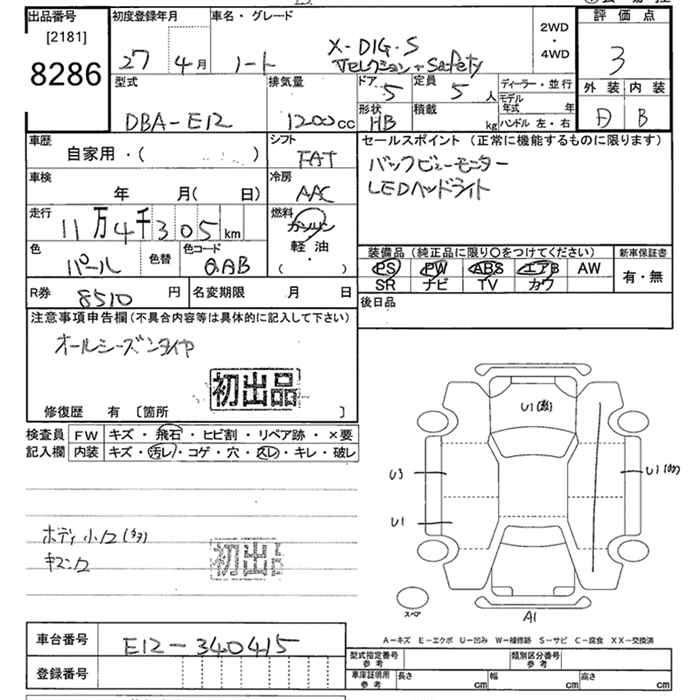 出品番号 初度登録年月 車名・グレード 2WD・4WD 評価点
[2181]
8286
27 4月 ノート X-DIG-S
Vセレクション+Safety
3
型式 排気量 ドア 定員 ディーラー・並行 外装 内装
5 5人 モデル年式 年
DBA-E12 1200cc 形状 積載 ハンドル 左・右
HB kg
D B
車歴 シフト セールスポイント (正常に機能するものに限ります)
自家用・( ) FAT バックビューモニター
車検 冷房 LEDヘッドライト
年 月( 日) AAC
走行 燃料
11万4千305km ガソリン
軽油
( ・ )
色 色替 色コード 装備品 (純正品に限り〇をつけてください) 新車保証書
パール QAB PS PW ABS エアB AW 有・無
SR ナビ TV カワ
R券 8510円 名変期限 月 日 後日品
注意事項申告欄(不具合内容等は具体的に記入して下さい)
オールシーズンタイヤ
初出品
修復歴 有 〔箇所 〕
検査員 FW キズ・飛石・ヒビ割・リペア跡・×要
記入欄 内装 キズ・汚レ・コゲ・穴・スレ・キレ・破レ
U3
U1
A1
スペア
ボディ小
初出品
A-キズ E-エクボ U-凹み W-補修跡 S-サビ C-腐食 XX-交換済
車台番号 E12-340415
登録番号
型式指定番号 参考 類別区分番号 参考
車庫証明用 参考 長さ cm 幅 cm 高さ cm